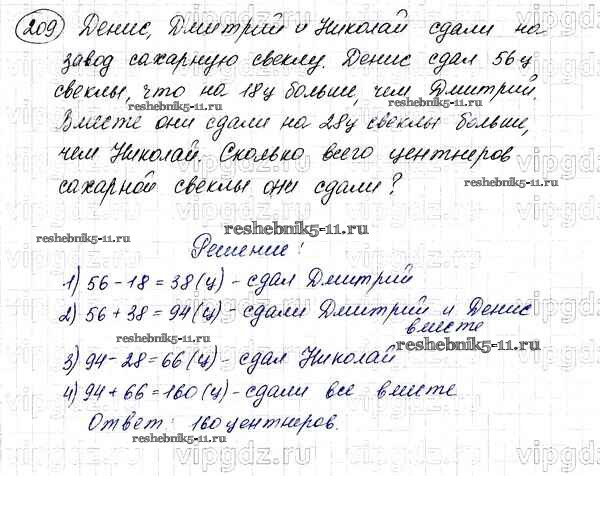 209 Денис, Дмитрий и Николай сдали на
завод сахарную свеклу. Денис сдал 56 ц
свеклы, что на 18 ц больше, чем Дмитрий.
reshebnik5-11.ru reshebnik5-11.ru
Вместе они сдали на 28 ц свеклы больше,
чем Николай. Сколько всего центнеров
vipgdz.ru vipgdz.ru vipgdz.ru
сахарной свеклы они сдали?
reshebnik5-11.ru
reshebnik5-11.ru reshebnik5-11.ru
Решение:
1) 56 - 18 = 38 (ц) - сдал Дмитрий
2) 56 + 38 = 94 (ц) - сдали Дмитрий и Денис
вместе
vipgdz.ru vipgdz.ru vipgdz.ru
reshebnik5-11.ru reshebnik5-11.ru
3) 94 - 28 = 66 (ц) - сдал Николай
4) 94 + 66 = 160 (ц) - сдали все вместе
Ответ: 160 центнеров.
reshebnik5-11.ru reshebnik5-11.ru
vipgdz.ru vipgdz.ru vipgdz.ru